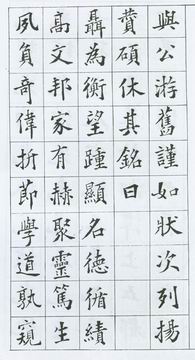 與公游舊謹如狀次列揚
贊碩休其銘曰
聶為衡望踵顯名德循績
高文邦家有赫聚靈篤生
夙負奇偉折節學道孰窺